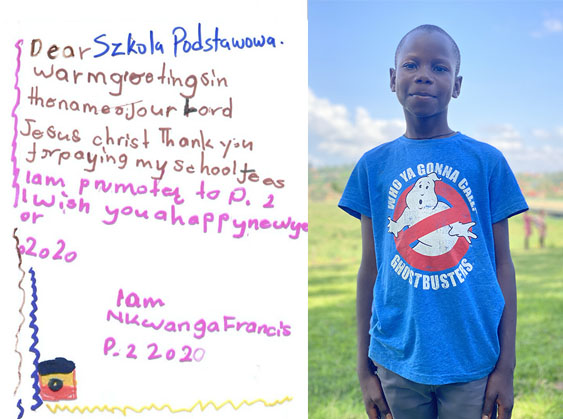 Dear Szkola Podstawowa.
warm greetings in
the name of our Lord
Jesus christ Thank you
for paying my school fees
Iam prmoteq to P. 2
I wish you a happy newye
or
2020
Iam
Nkwanga Francis
P. 2 2020
WHO YA GONNA CALL?
GHOSTBUSTERS